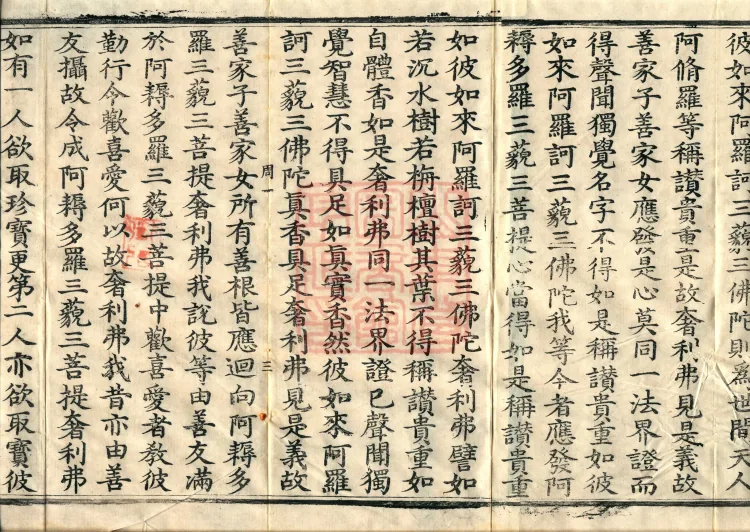 彼如來阿羅訶三藐三佛陀則爲世間天人
阿脩羅等稱讃貴重是故奢利弗見是義故
善家子善家女應發是心莫同一法界證而
得聲聞獨覺名字不得如是稱讃貴重如彼
如來阿羅訶三藐三佛陀我等今者應發阿
耨多羅三藐三菩提心當得如是稱讃貴重
如彼如來阿羅訶三藐三佛陀奢利弗譬如
若沉水樹若栴檀樹其葉不得稱讃貴重如
自體香如是奢利弗同一法界證已聲聞獨
覺智慧不得具足如真實香然彼如來阿羅
訶三藐三佛陀真香具足奢利弗見是義故
周一
三
善家子善家女所有善根皆應迴向阿耨多
羅三藐三菩提奢利弗我說彼等由善友滿
於阿耨多羅三藐三菩提中歡喜愛者教彼
勤行令歡喜愛何以故奢利弗我昔亦由善
友攝故令成阿耨多羅三藐三菩提奢利弗
如有一人欲取珍寶更第二人亦欲取寶彼